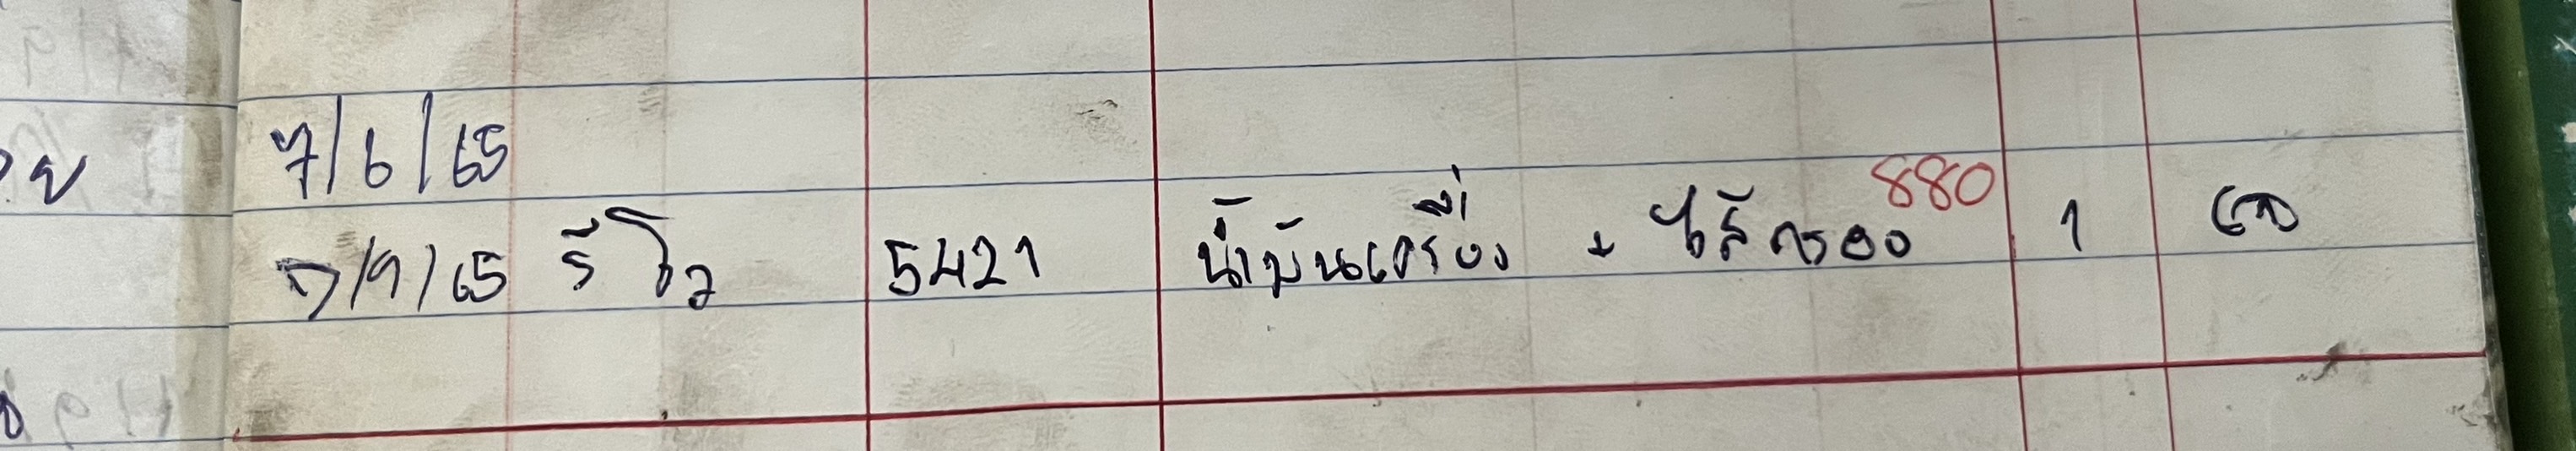 7/6/65
7/9/65 รีโว 5421 น้ำมันเครื่อง + ไส้กรอง 880 1